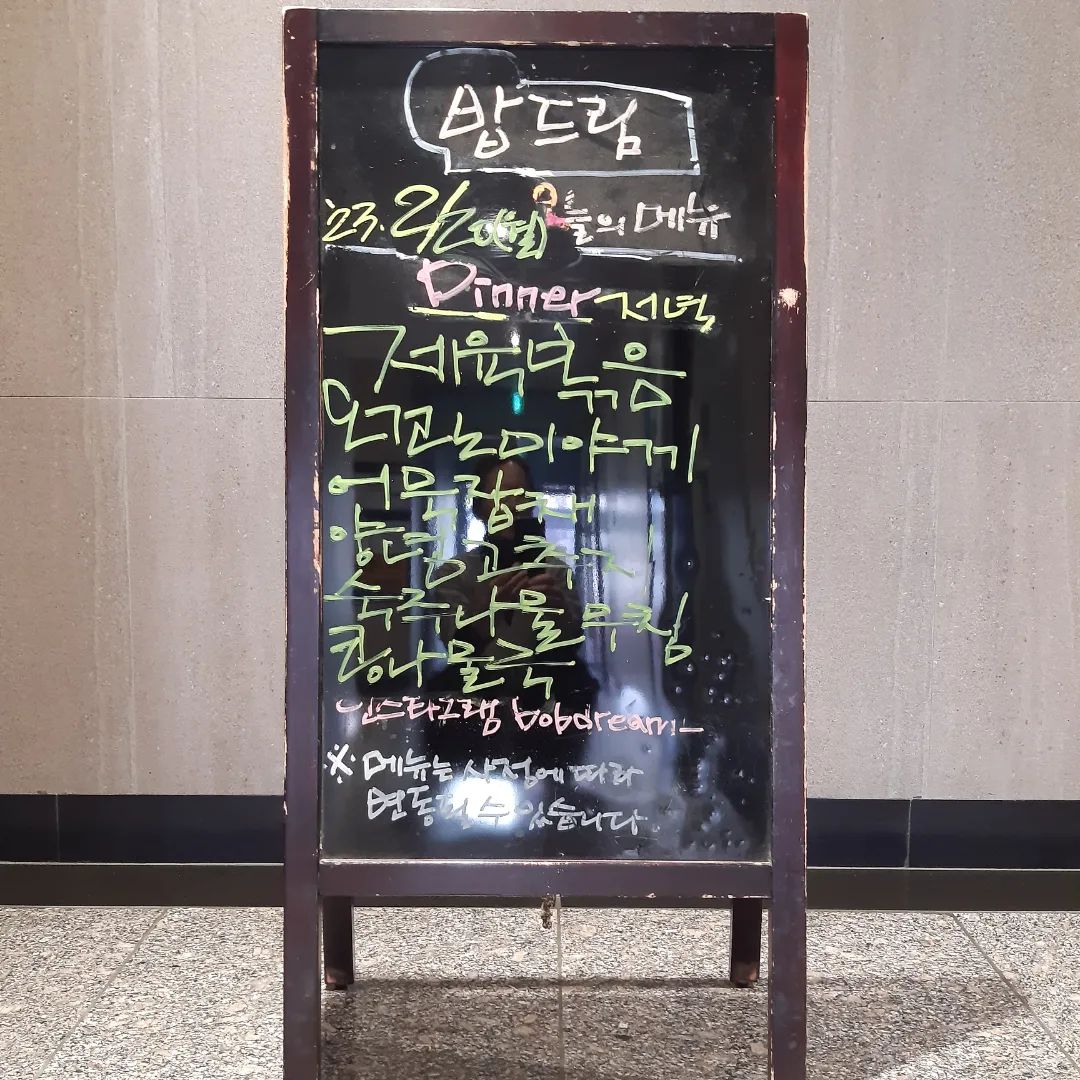 밥드림
'23. 2/20(월) 오늘의 메뉴
Dinner 저녁
제육볶음
오꼬노미야끼
어묵잡채
양념고추지
숙주나물무침
콩나물국
인스타그램 bobdream_
※ 메뉴는 사정에 따라
변동될 수 있습니다